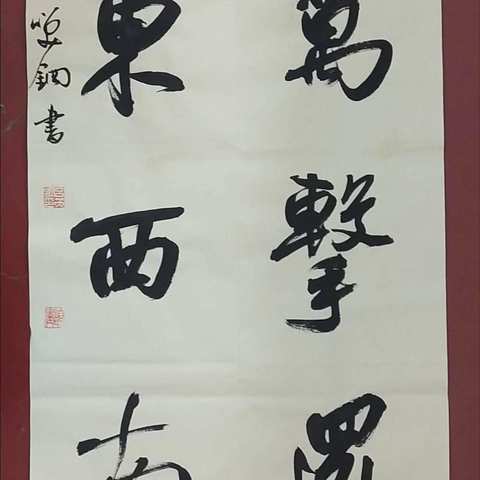 萬擊
東西南
鋼書